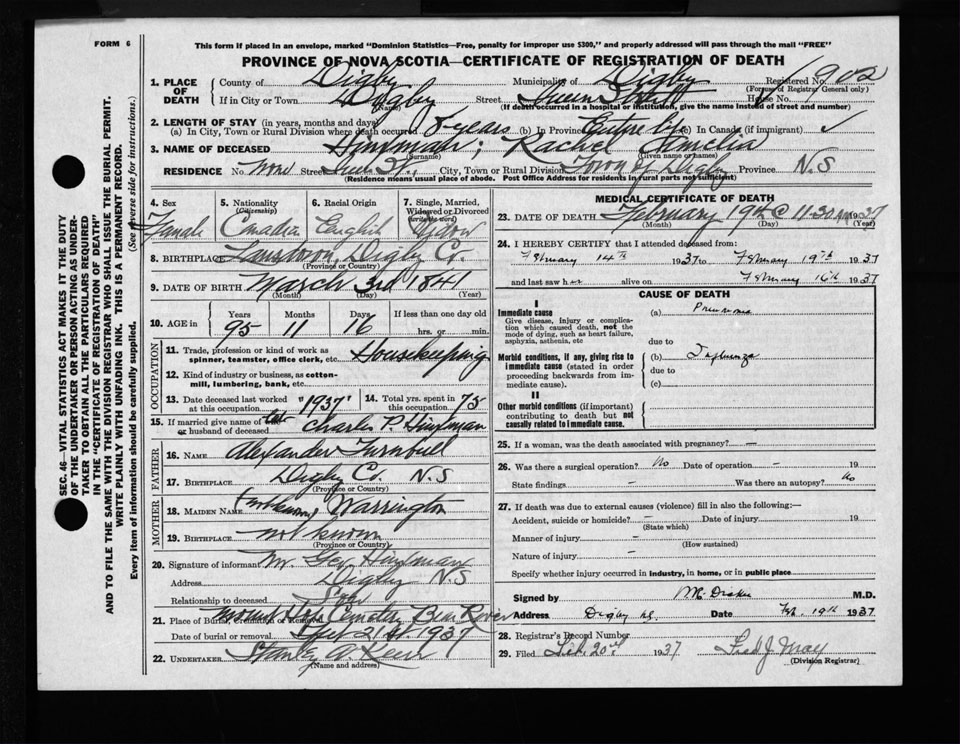 FORM 6
This form if placed in an envelope, marked "Dominion Statistics—Free, penalty for improper use $300," and properly addressed will pass through the mail "FREE"
PROVINCE OF NOVA SCOTIA—CERTIFICATE OF REGISTRATION OF DEATH
1. PLACE OF DEATH County of Digby Municipality of Digby Registered No. 902
(For use of Registrar General only)
If in City or Town Digby Street Queen Street House No.
(Name) (If death occurred in a hospital or institution, give the name instead of street and number)
2. LENGTH OF STAY (in years, months and days)
(a) In City, Town or Rural Division where death occurred 8 years (b) In Province Entire life (c) In Canada (if immigrant) ✓
3. NAME OF DECEASED Hinxman; Rachel Amelia
(Surname) (Given name or names)
RESIDENCE No. None Street Queen St., City, Town or Rural Division Town of Digby Province N.S
(Residence means usual place of abode. Post Office Address for residents in rural parts not sufficient)
4. Sex 5. Nationality (Citizenship) 6. Racial Origin 7. Single, Married, Widowed or Divorced (write the word)
Female Canadian English Widow
8. BIRTHPLACE Lansdown, Digby Co.
(Province or Country)
9. DATE OF BIRTH March 3rd 1841
(Month) (Day) (Year)
10. AGE in Years Months Days If less than one day old
95 11 16 hrs. or min.
OCCUPATION
11. Trade, profession or kind of work as spinner, teamster, office clerk, etc. Housekeeping
12. Kind of industry or business, as cotton-mill, lumbering, bank, etc.
13. Date deceased last worked at this occupation "1937" 14. Total yrs. spent in this occupation 75
15. If married give name of wife or husband of deceased late Charles P. Hinxman
FATHER
16. NAME Alexander Turnbull
17. BIRTHPLACE Digby Co. N.S
(Province or Country)
MOTHER
18. MAIDEN NAME Warrington
19. BIRTHPLACE not known
(Province or Country)
20. Signature of informant Mr. Geo Hinxman
Address Digby N.S
Relationship to deceased Son
21. Place of Burial, Cremation or Removal Mount Hope Cemetery Bear River
Date of burial or removal 21st. 1937
22. UNDERTAKER Stanley A.
(Name and address)
MEDICAL CERTIFICATE OF DEATH
23. DATE OF DEATH February 19th @ 11-30 AM 1937
(Month) (Day) (Year)
24. I HEREBY CERTIFY that I attended deceased from:
February 14th 1937 to February 19th 1937
and last saw her alive on February 16th 1937
CAUSE OF DEATH
I
Immediate cause (a) Pneumonia
Give disease, injury or complication which caused death, not the mode of dying, such as heart failure, asphyxia, asthenia, etc
due to
Morbid conditions, if any, giving rise to immediate cause (stated in order proceeding backwards from immediate cause). (b) Influenza
due to
(c)
II
Other morbid conditions (if important) contributing to death but not causally related to immediate cause.
25. If a woman, was the death associated with pregnancy? —
26. Was there a surgical operation? No Date of operation - 19
State findings - Was there an autopsy? No
27. If death was due to external causes (violence) fill in also the following:—
Accident, suicide or homicide? - Date of injury 19
(State which)
Manner of injury -
(How sustained)
Nature of injury -
Specify whether injury occurred in industry, in home, or in public place
Signed by M.D.
Address Digby NS. Date Feb. 19th 1937
28. Registrar's Record Number
29. Filed Feb. 20th 1937 Fred J. May
(Division Registrar)
SEC. 46—VITAL STATISTICS ACT MAKES IT THE DUTY
OF THE UNDERTAKER OR PERSON ACTING AS UNDERTAKER TO OBTAIN ALL THE PARTICULARS REQUIRED
IN THE "CERTIFICATE OF REGISTRATION OF DEATH"
AND TO FILE THE SAME WITH THE DIVISION REGISTRAR WHO SHALL ISSUE THE BURIAL PERMIT.
WRITE PLAINLY WITH UNFADING INK. THIS IS A PERMANENT RECORD.
Every item of information should be carefully supplied. (See reverse side for instructions.)